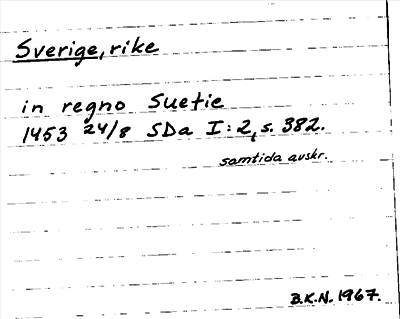 Sverige, rike
in regno Suetie
1453 24/8 SDa I:2, s. 382.
samtida avskr.
B.K.N. 1967.